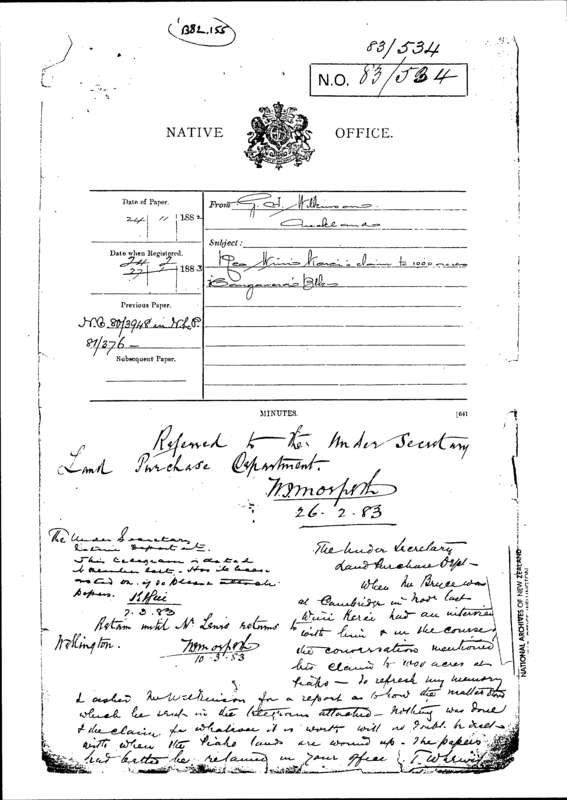 BBL.155
83/534
N.O. 83/534
NATIVE OFFICE.
Date of Paper.
24 11 1882
From G. T. Wilkinson
Auckland
Subject:
Date when Registered.
1883
Wini Kerei's claim to 1000 acres
Previous Paper.
N.O. 80/3948 in N.L.P.
81/376
Subsequent Paper.
MINUTES.
Referred to the Under Secretary
Land Purchase Department.
W.J. Morpeth
26.2.83
The Under Secretary
Native Department.
This telegram is dated
November last. Has it been
acted on. if so please attach
papers.
7.3.83
Retain until Mr Lewis returns to
Wellington.
W.J. Morpeth
10.3.83
The Under Secretary
Land Purchase Dept
When Mr Bryce was
at Cambridge in Novr last
Wini Kerei had an interview
with him & in the course of
the conversation mentioned
her claim to 1000 acres at
Piako - To refresh my memory
I asked Mr Wilkinson for a report as to how the matter stood
which he sent in the telegram attached - Nothing was done
& the claim for whatever it is worth will no doubt be dealt
with when the Piako lands are wound up - The papers
had better be retained in your office
T. W. Lewis
NATIONAL ARCHIVES OF NEW ZEALAND